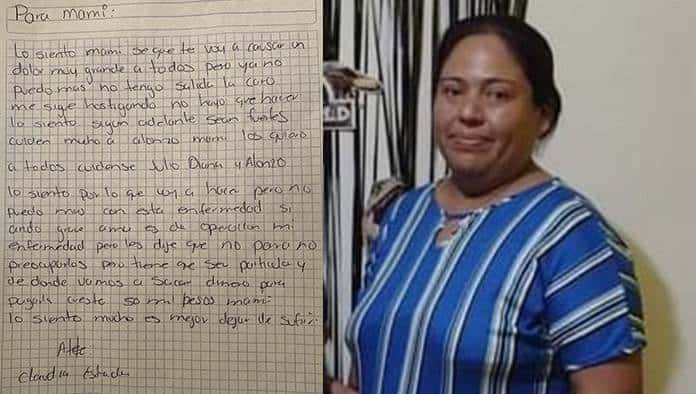 Para Mami:
Lo siento mami se que te voy a causar un
dolor muy grande a todos pero ya no
puedo mas no tengo salida la caro
me sige hostigando no hayo que hacer
lo siento sigan adelante sean fuertes
cuiden mucho a alonzo mami los quiero
a todos cuidense Julio Diana y Alonzo
lo siento por lo que voy a hacer pero no
puedo mas con esta enfermedad si
ando grave amá es de operacion mi
enfermedad pero les dije que no para no
preocuparlos pero tiene que ser particular y
de donde vamos a sacar dinero para
pagarla cueste 50 mil pesos mami
lo siento mucho es mejor dejar de sufrir.
Atte
Claudia Estrada